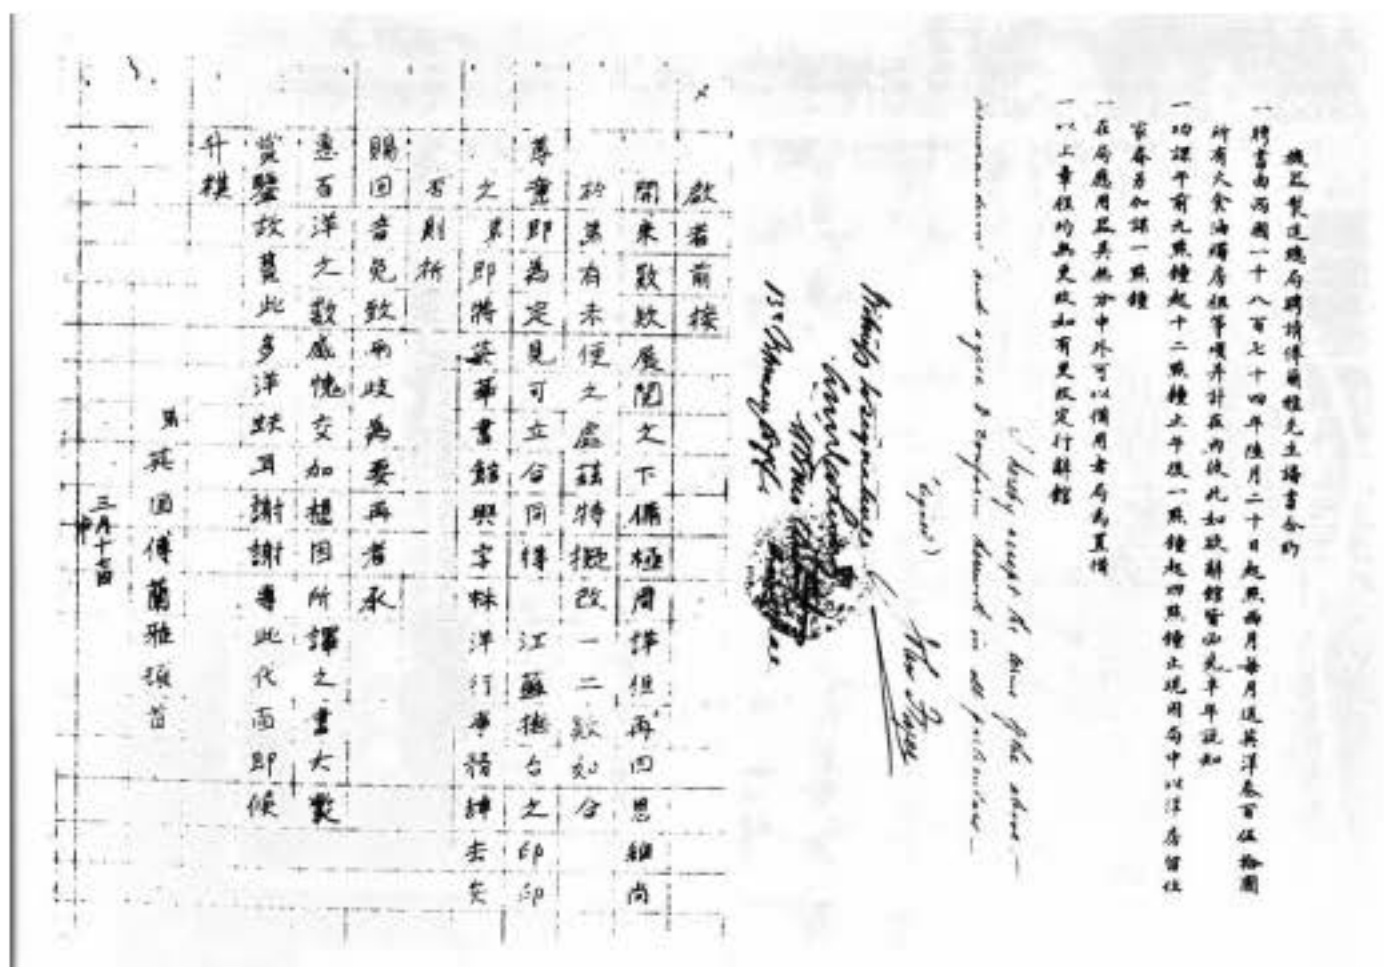 機器製造總局聘請傅蘭雅先生譯書合約
一聘書由西國一千八百七十四年陸月二十日起照西月每月送英洋叁百伍拾圓
所有火食油燭房租等項并計在內彼此如欲辭館皆必先半年説知
一功課午前九點鐘起十二點鐘止午後一點鐘起四點鐘止現因局中以洋房留住
家眷另加課一點鐘
一在局應用器具熱分中外可以備用者局為置備
一以上章程均無更改如有更改定行辭館
I hereby accept the terms of the above
memorandum and agree to conform herewith in all particulars
(signed) John Fryer
啟者前接
開來數欵展閱之下備極周詳但再四思維尚
於弟有未便之處茲特擬改一二欵如合
尊意即為定見可立合同得 江蘇撫台之印印
之弟即將英華書館與字林洋行事務辭去矣
否則祈
賜回音免致兩歧為要再者承
惠百洋之數感愧交加想因所譯之書大數
賞鑒故費此多洋蚨耳謝謝專此代面即候
升祺
弟 英國傅蘭雅頓首
三月十七日